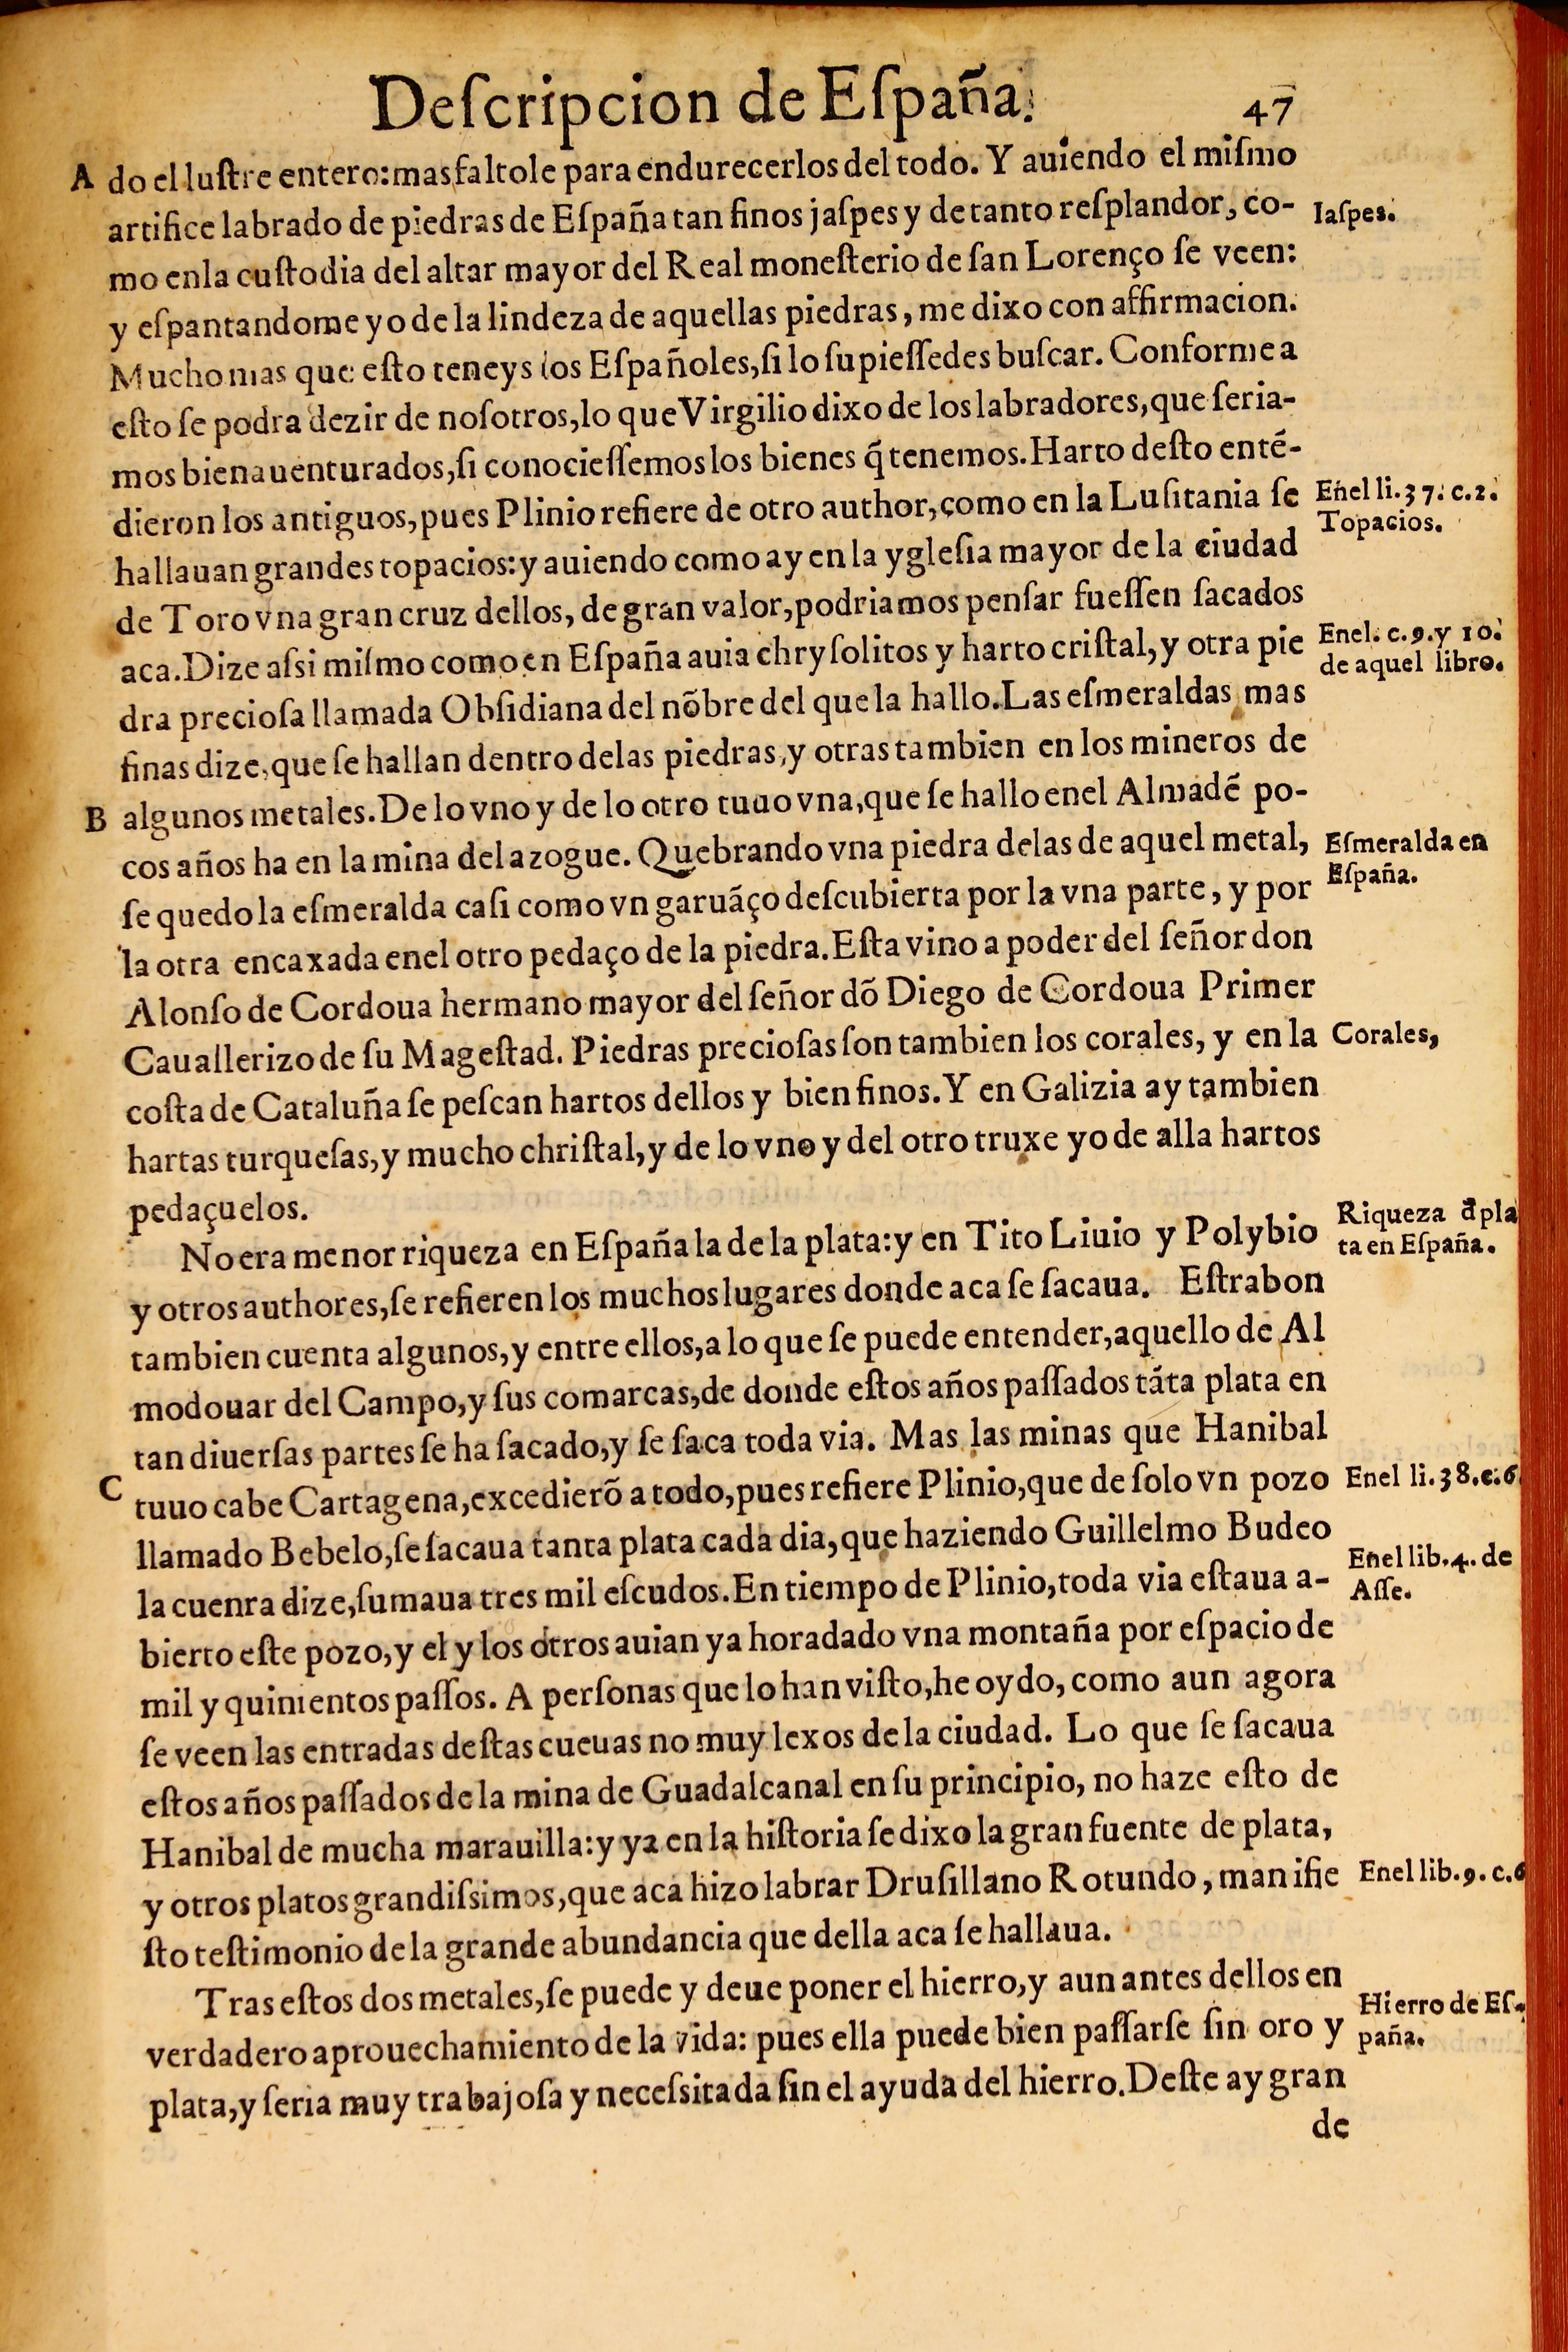 Deſcripcion de Eſpaña.
47
A do el luſtre entero: mas faltole para endurecerlos del todo. Y auiendo el miſmo
artifice labrado de piedras de Eſpaña tan finos jaſpes y de tanto reſplandor, co-
Iaſpes.
mo enla cuſtodia del altar mayor del Real moneſterio de ſan Lorenço ſe veen:
y eſpantandome yo de la lindeza de aquellas piedras, me dixo con affirmacion.
Mucho mas que eſto teneys los Eſpañoles, ſi lo ſupieſſedes buſcar. Conforme a
eſto ſe podra dezir de noſotros, lo que Virgilio dixo de los labradores, que ſeria-
mos bienauenturados, ſi conocieſſemos los bienes q̃ tenemos. Harto deſto entẽ-
dieron los antiguos, pues Plinio refiere de otro author, como en la Luſitania ſe
Enel li. 37. c. 2.
Topacios.
hallauan grandes topacios: y auiendo como ay en la ygleſia mayor de la ciudad
de Toro vna gran cruz dellos, de gran valor, podriamos penſar fueſſen ſacados
aca. Dize aſsi miſmo como en Eſpaña auia chryſolitos y harto criſtal, y otra pie
Enel. c. 9. y 10.
de aquel libro.
dra precioſa llamada Obſidiana del nõbre del que la hallo. Las eſmeraldas mas
finas dize, que ſe hallan dentro delas piedras, y otras tambien en los mineros de
B algunos metales. De lo vno y de lo otro tuuo vna, que ſe hallo enel Almadẽ po-
cos años ha en la mina del azogue. Quebrando vna piedra delas de aquel metal,
Eſmeralda en
Eſpaña.
ſe quedo la eſmeralda caſi como vn garuãço deſcubierta por la vna parte, y por
la otra encaxada enel otro pedaço de la piedra. Eſta vino a poder del ſeñor don
Alonſo de Cordoua hermano mayor del ſeñor dõ Diego de Cordoua Primer
Cauallerizo de ſu Mageſtad. Piedras precioſas ſon tambien los corales, y en la
Corales,
coſta de Cataluña ſe peſcan hartos dellos y bien finos. Y en Galizia ay tambien
hartas turqueſas, y mucho chriſtal, y de lo vno y del otro truxe yo de alla hartos
pedaçuelos.
No era menor riqueza en Eſpaña la de la plata: y en Tito Liuio y Polybio
Riqueza d̃ pla
ta en Eſpaña.
y otros authores, ſe refieren los muchos lugares donde aca ſe ſacaua. Eſtrabon
tambien cuenta algunos, y entre ellos, a lo que ſe puede entender, aquello de Al
modouar del Campo, y ſus comarcas, de donde eſtos años paſſados tãta plata en
tan diuerſas partes ſe ha ſacado, y ſe ſaca toda via. Mas las minas que Hanibal
C tuuo cabe Cartagena, excedierõ a todo, pues refiere Plinio, que de ſolo vn pozo
Enel li. 38. c. 6.
llamado Bebelo, ſe ſacaua tanta plata cada dia, que haziendo Guillelmo Budeo
la cuenra dize, ſumaua tres mil eſcudos. En tiempo de Plinio, toda via eſtaua a-
Enel lib. 4. de
Aſſe.
bierto eſte pozo, y el y los otros auian ya horadado vna montaña por eſpacio de
mil y quinientos paſſos. A perſonas que lo han viſto, he oydo, como aun agora
ſe veen las entradas deſtas cueuas no muy lexos de la ciudad. Lo que ſe ſacaua
eſtos años paſſados de la mina de Guadalcanal en ſu principio, no haze eſto de
Hanibal de mucha marauilla: y ya en la hiſtoria ſe dixo la gran fuente de plata,
y otros platos grandiſsimos, que aca hizo labrar Druſillano Rotundo, manifie
Enel lib. 9. c. 6
ſto teſtimonio de la grande abundancia que della aca ſe hallaua.
Tras eſtos dos metales, ſe puede y deue poner el hierro, y aun antes dellos en
Hierro de Eſ-
paña.
verdadero aprouechamiento de la vida: pues ella puede bien paſſarſe ſin oro y
plata, y ſeria muy trabajoſa y neceſsitada ſin el ayuda del hierro. Deſte ay gran
de